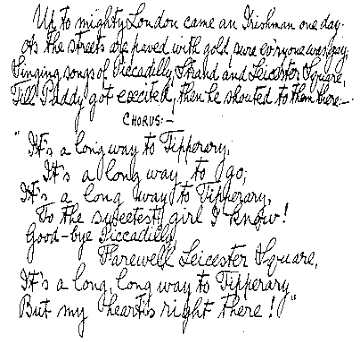 Up to mighty London came an Irishman one day.
As the streets are paved with gold, sure ev'ryone was gay;
Singing songs of Piccadilly, Strand and Leicester Square,
Till Paddy got excited, then he shouted to them there:—
CHORUS:—
"It's a long way to Tipperary,
It's a long way to go;
It's a long way to Tipperary,
To the sweetest girl I know!
Good-bye Piccadilly,
Farewell Leicester Square,
It's a long, long way to Tipperary
But my heart's right there!"